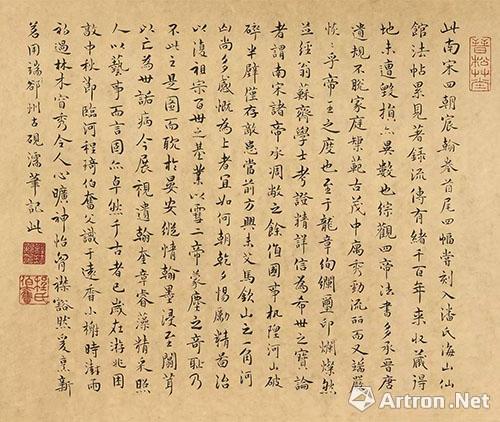 此南宋四朝宸翰卷首尾四幅嘗刻入潘氏海山仙
館法帖累見著錄流傳有緒千百年來收藏得
地未遭毀損亦異數也綜觀四帝法書多承晉唐
遺規不脫家庭榘範古茂中寓秀勁流麗而又端嚴
恢恢乎帝王之度也至于龍章絢爛璽印斕燦然
並經翁蘇齋學士考證精詳信為希世之寶論
者謂南宋諸帝承凋敝之餘值國華杌隉河山破
碎半壁僅存敵患當前方興未艾馬欽山之一角河
山尚多感慨為上者宜如何朝乾夕惕勵精啚治
以復祖宗百世之基業以雪二帝蒙塵之奇恥乃
不此之是圖而耽於晏安縱情翰墨浸至闒茸
以亡為世詬病今展視遺翰奎章睿藻精采照
人以藝事而言固亦卓然千古者已歲在游兆困
敦中秋節臨河程琦伯奮父識于遠香小榭時澍雨
初過林木容秀令人心曠神怡胸襟豁然爰烹新
茗用端州古硯濡筆記此
程氏伯奮
Artron.Net
雅昌艺术网